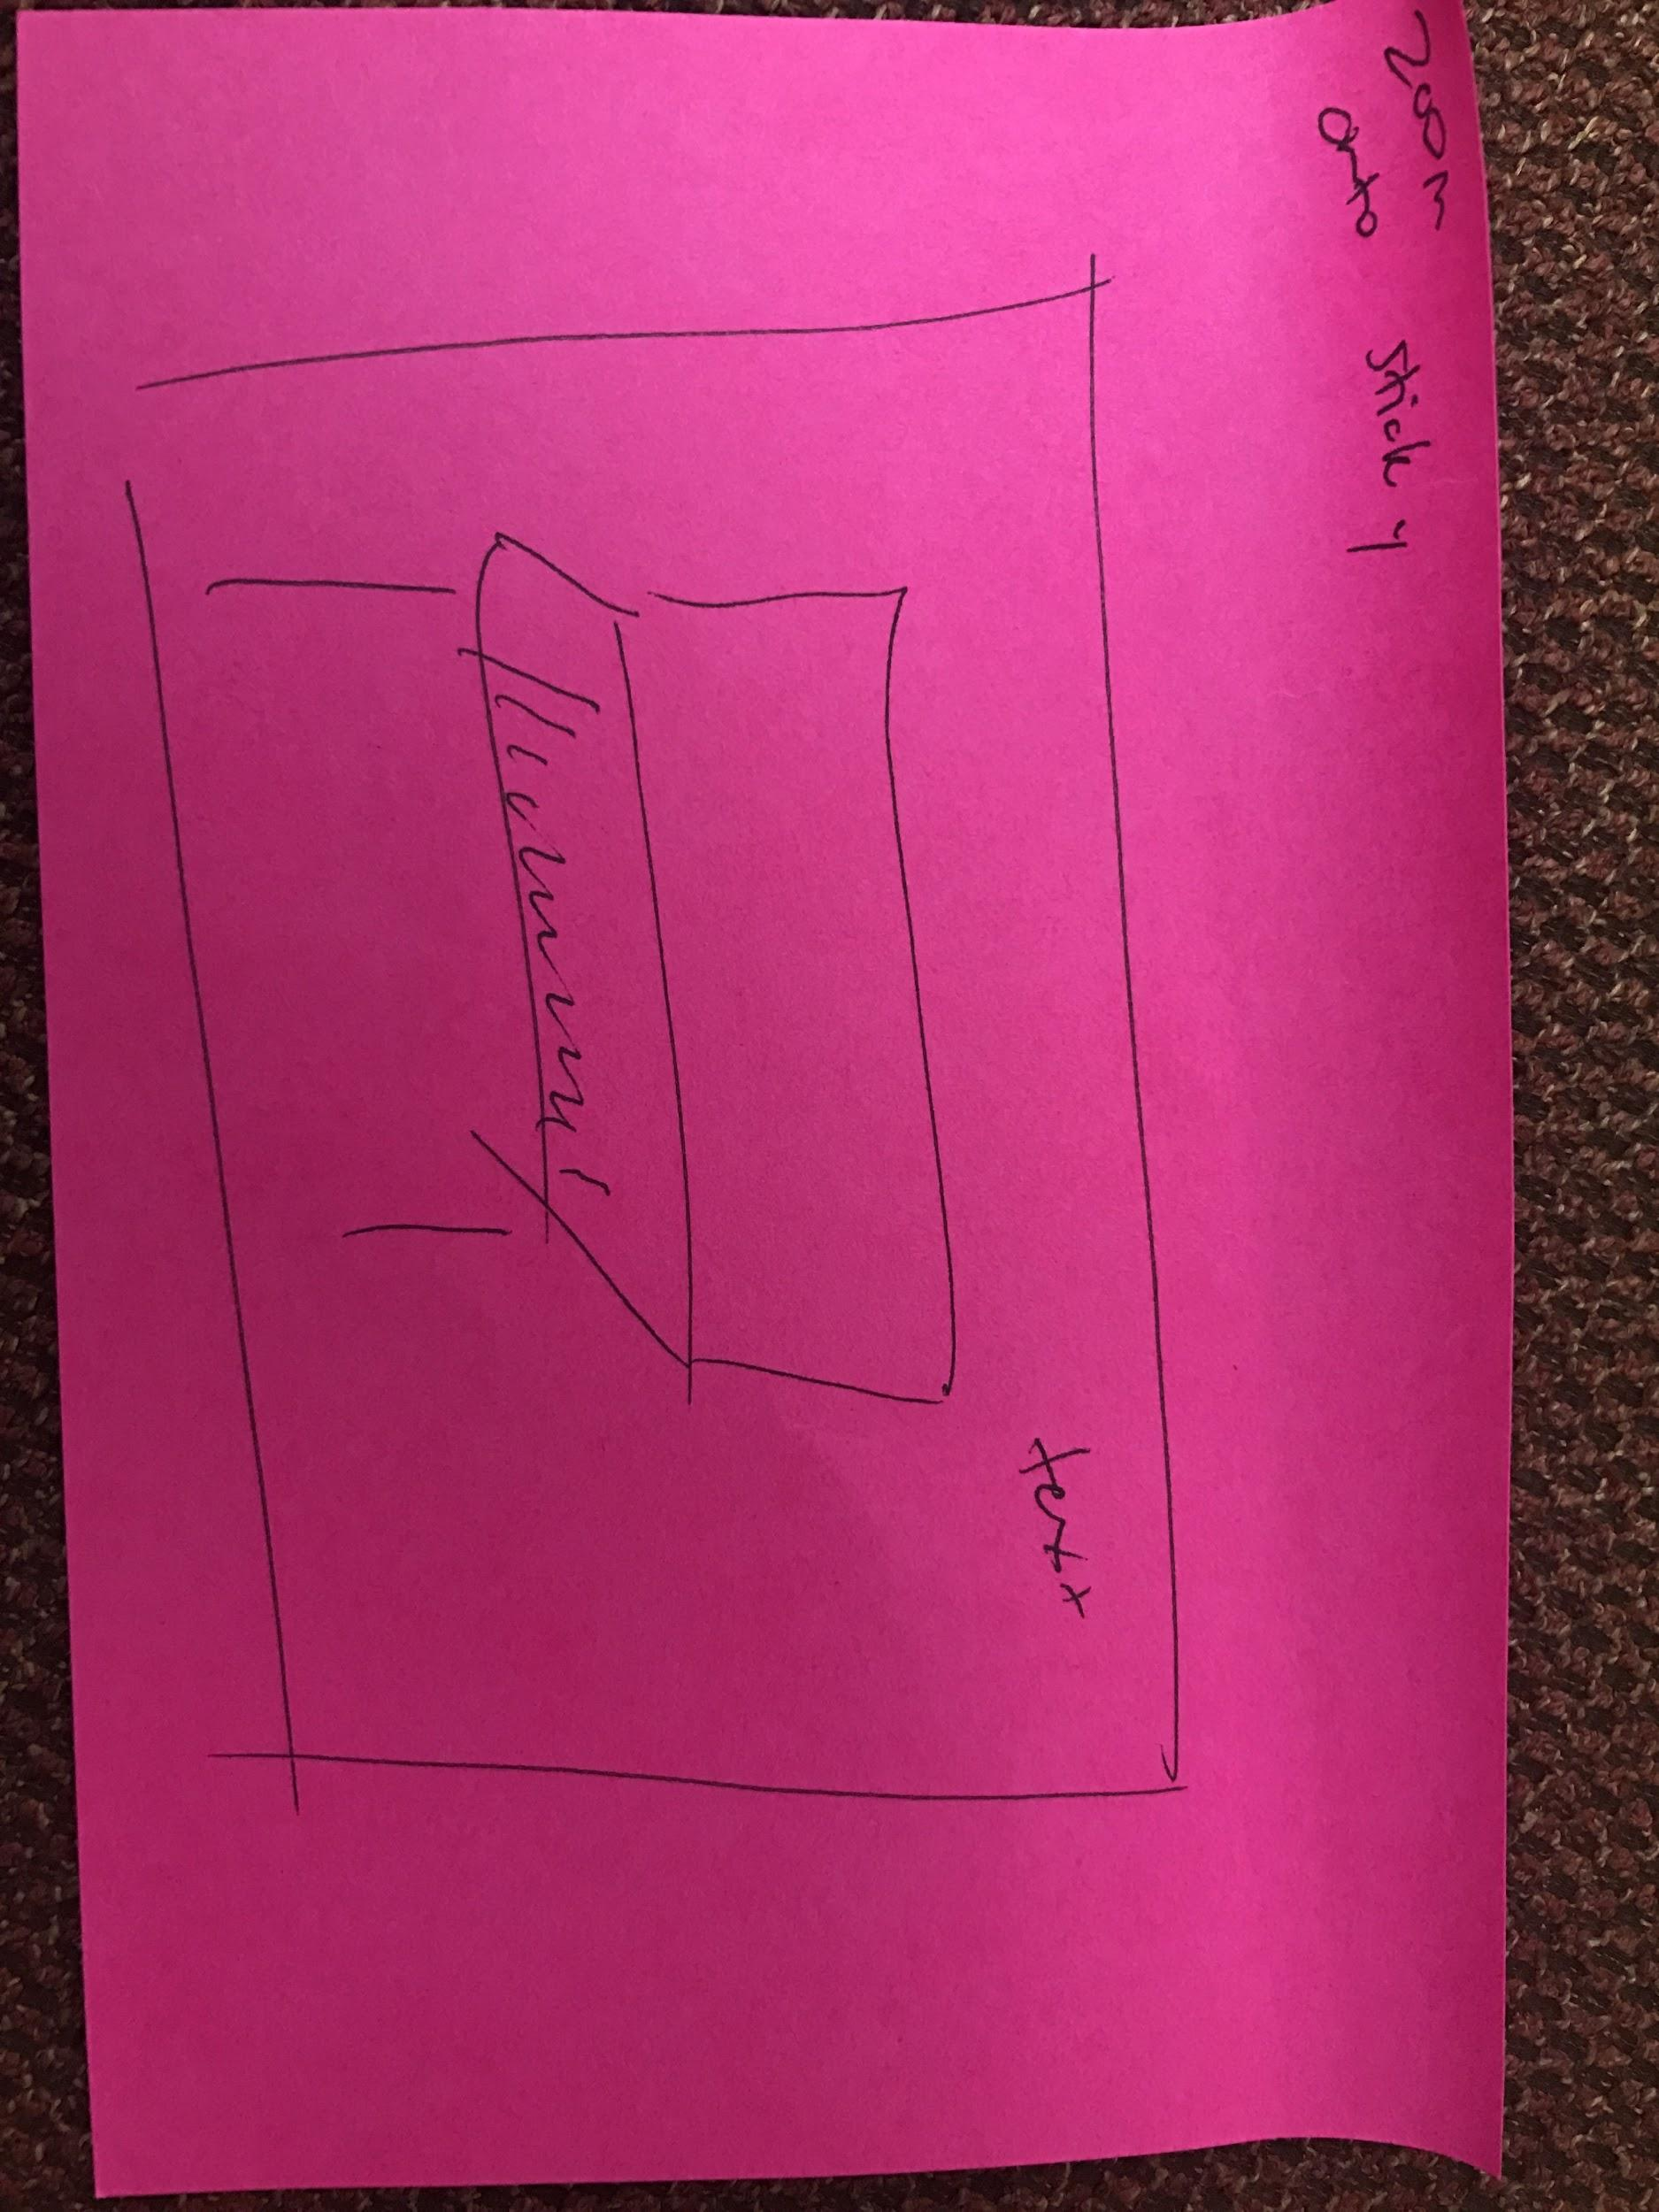 zoom
onto sticky
text